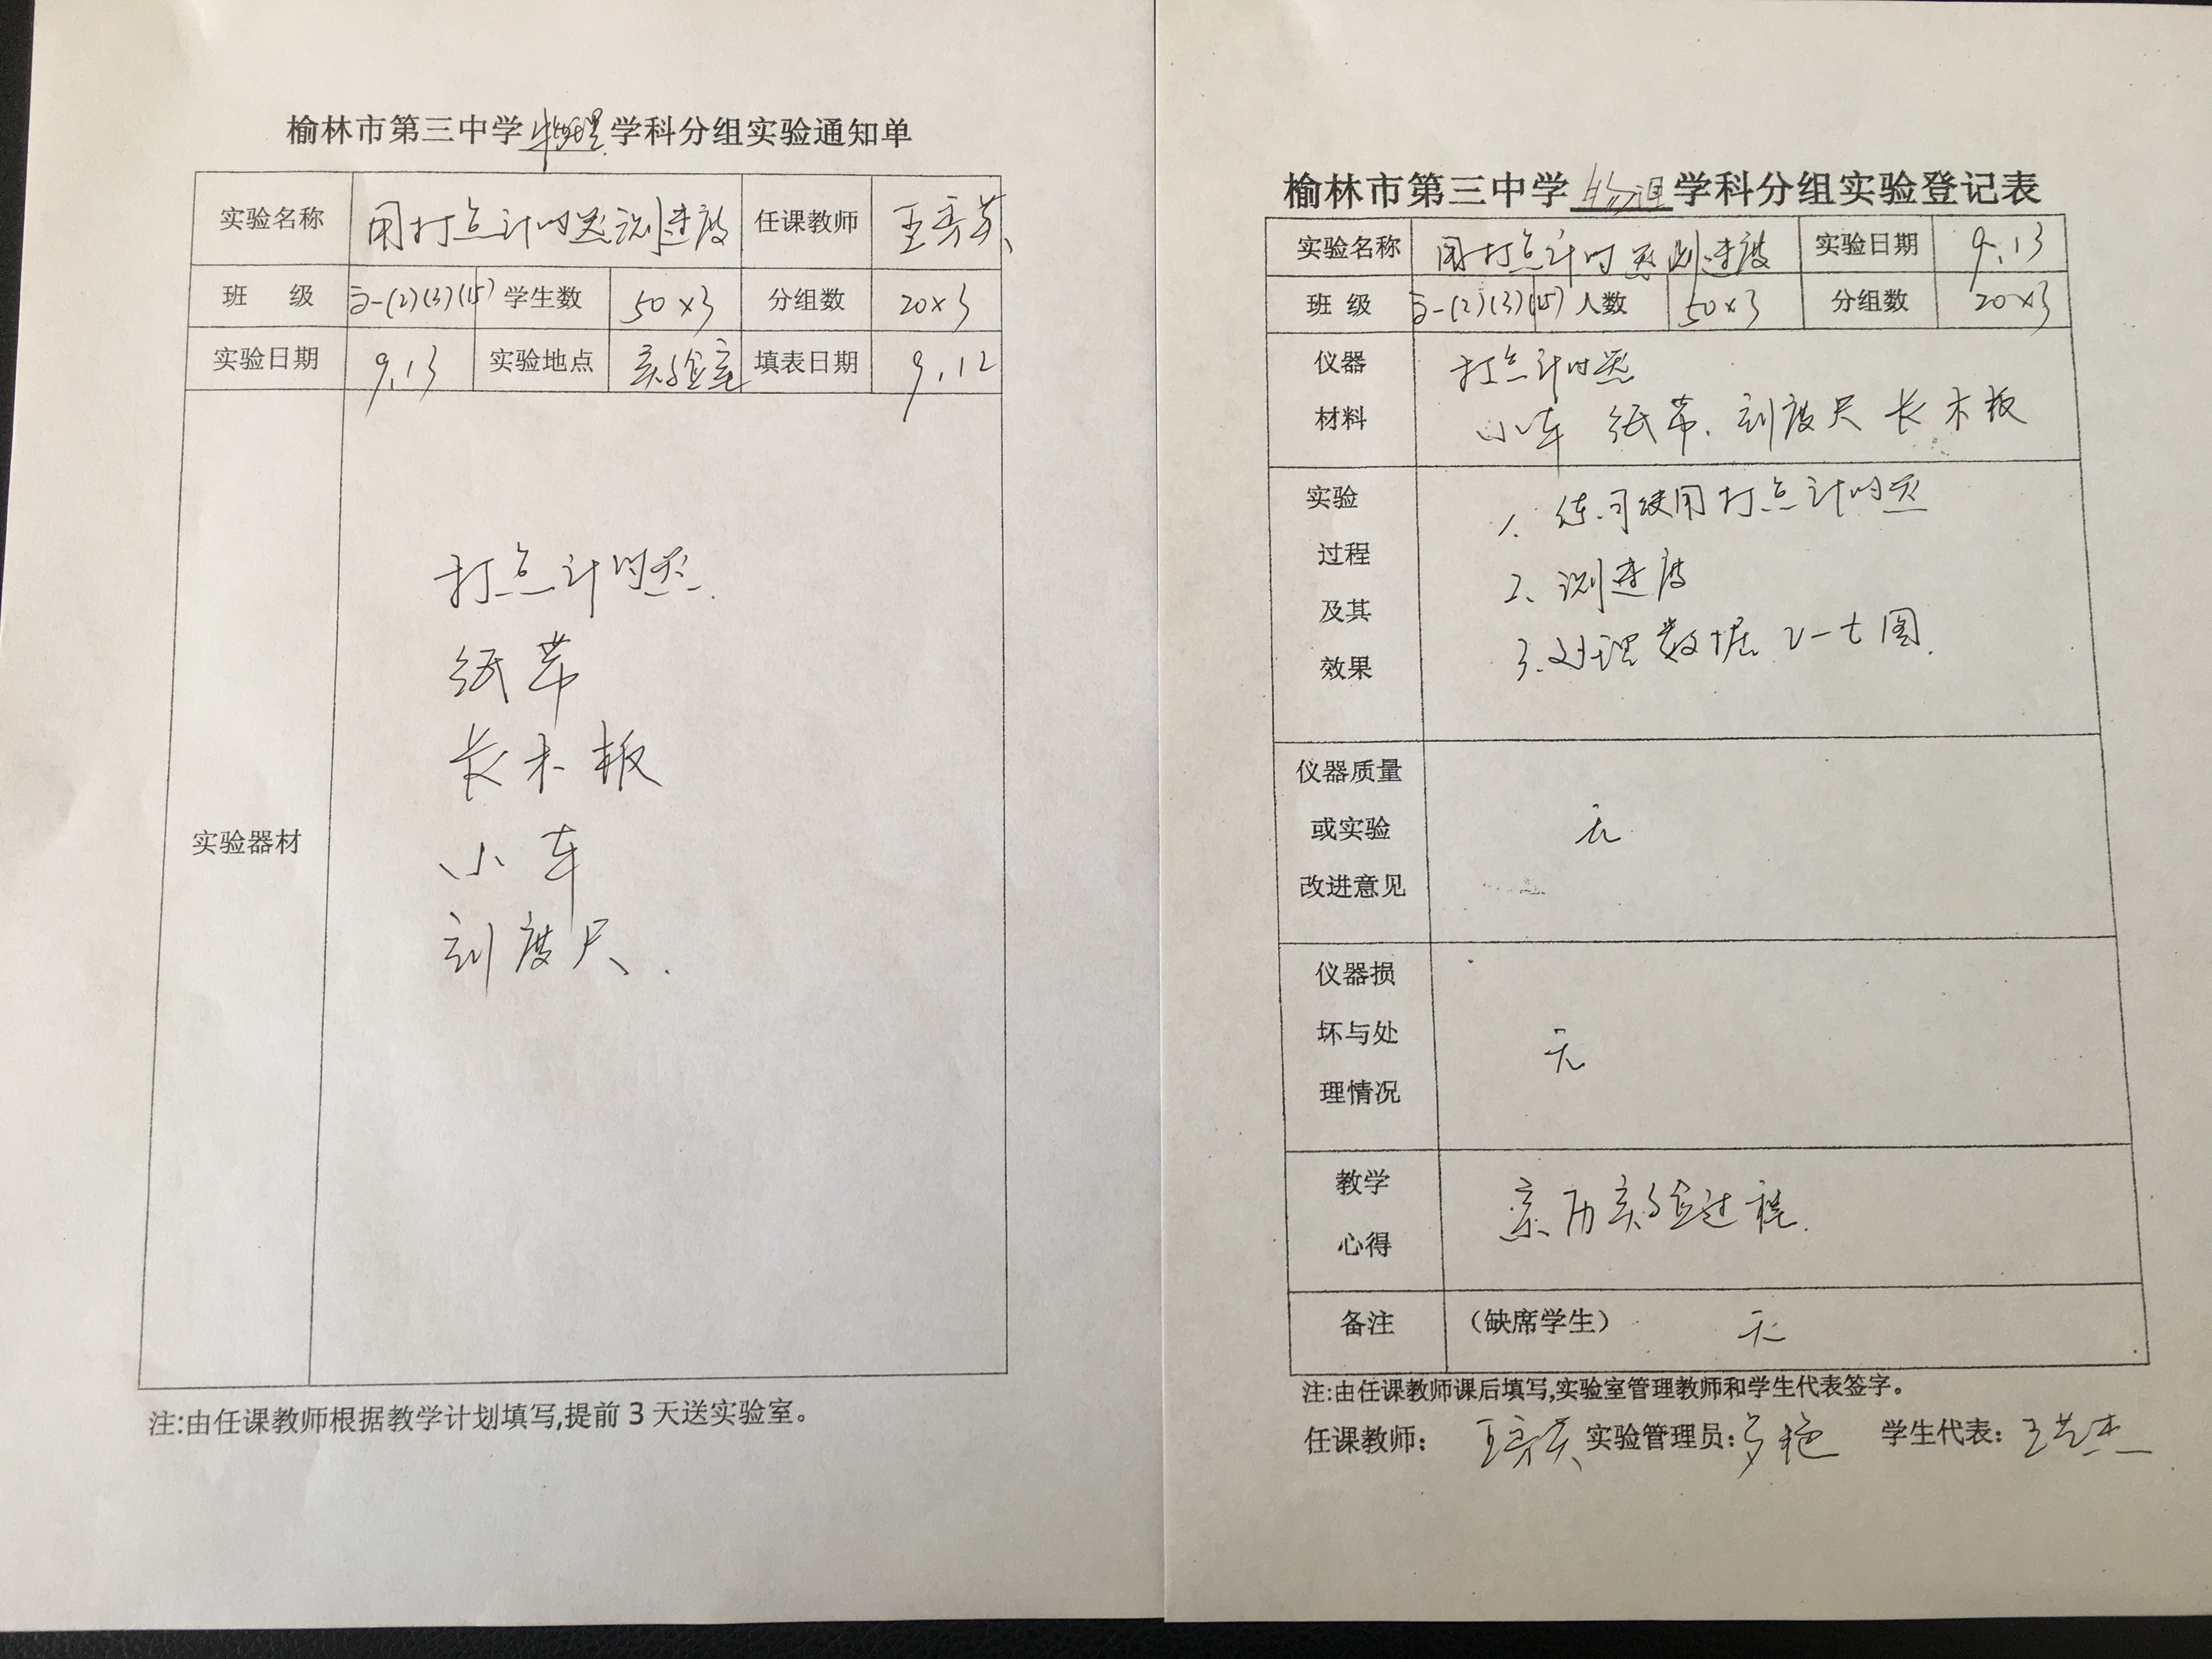 榆林市第三中学 物理 学科分组实验通知单
实验名称 用打点计时器测速度 任课教师
班 级 高一(2)(3)(15) 学生数 50×3 分组数 20×3
实验日期 9.13 实验地点 实验室 填表日期 9.12
实验器材
打点计时器.
纸带
长木板
小车
刻度尺.
注:由任课教师根据教学计划填写,提前3天送实验室。
榆林市第三中学 物理 学科分组实验登记表
实验名称 用打点计时器测速度 实验日期 9.13
班 级 高一(2)(3)(15) 人数 50×3 分组数 20×3
仪器 打点计时器
材料 小车 纸带、刻度尺 长木板
实验 1. 练习使用打点计时器
过程
及其 2、测速度
效果 3.处理数据 v-t图.
仪器质量
或实验 无
改进意见
仪器损
坏与处 无
理情况
教学 亲历实验过程.
心得
备注 (缺席学生) 无
注:由任课教师课后填写,实验室管理教师和学生代表签字。
任课教师: 实验管理员: 学生代表: